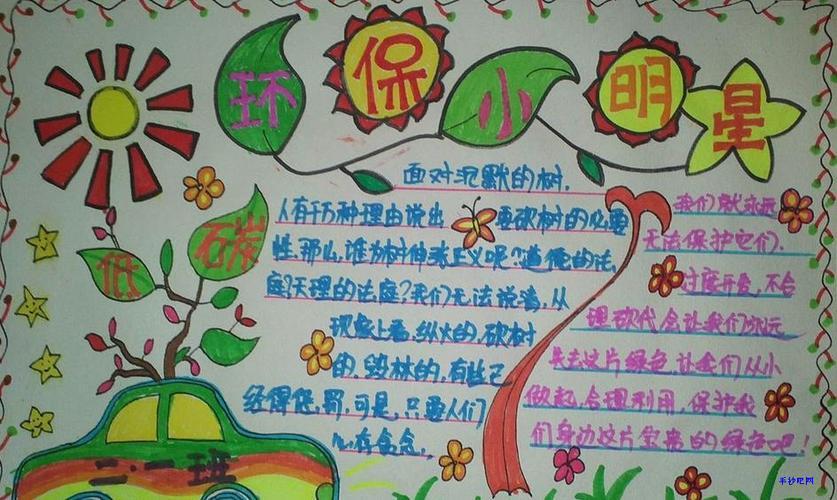 环保小明星
低碳
二·一班
面对沉默的树,
人有千万种理由说出 要砍树的必要
性,那么,谁为树伸张正义呢?道德的法
庭?天理的法庭?我们无法说清,从
现象上看,纵火的,砍树
的,毁林的,有些已
经得惩罚,可是,只要人们
心存贪念,
我们就永远
无法保护它们.
过度开发,不合
理砍伐会让我们永远
失去这片绿色,让我们从小
做起,合理利用,保护我
们身边这片宝贵的绿色吧!
手抄吧网